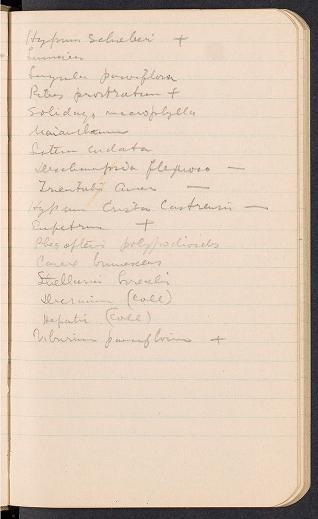 Hypnum Schreberi +
Linnaea
Luzula parviflora
Ribes prostratum +
Solidago macrophylla
Maianthemum
cordata
Deschampsia flexuosa —
Trientalis Amer —
Hypnum Crista Castrensis —
Empetrum +
Phegopteris polypodioides
Carex brunescens
Stellaria borealis
Dicranum (Coll)
Hepatic (Coll)
Viburnum pauciflorum +